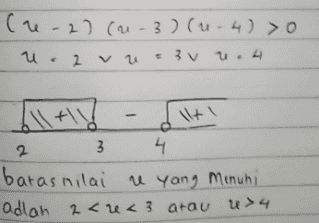 (x - 2) (x - 3) (x - 4) > 0
x = 2 v x = 3 v x = 4
+ - +
2 3 4
batas nilai x yang Menuhi
adlah 2 < x < 3 atau x > 4